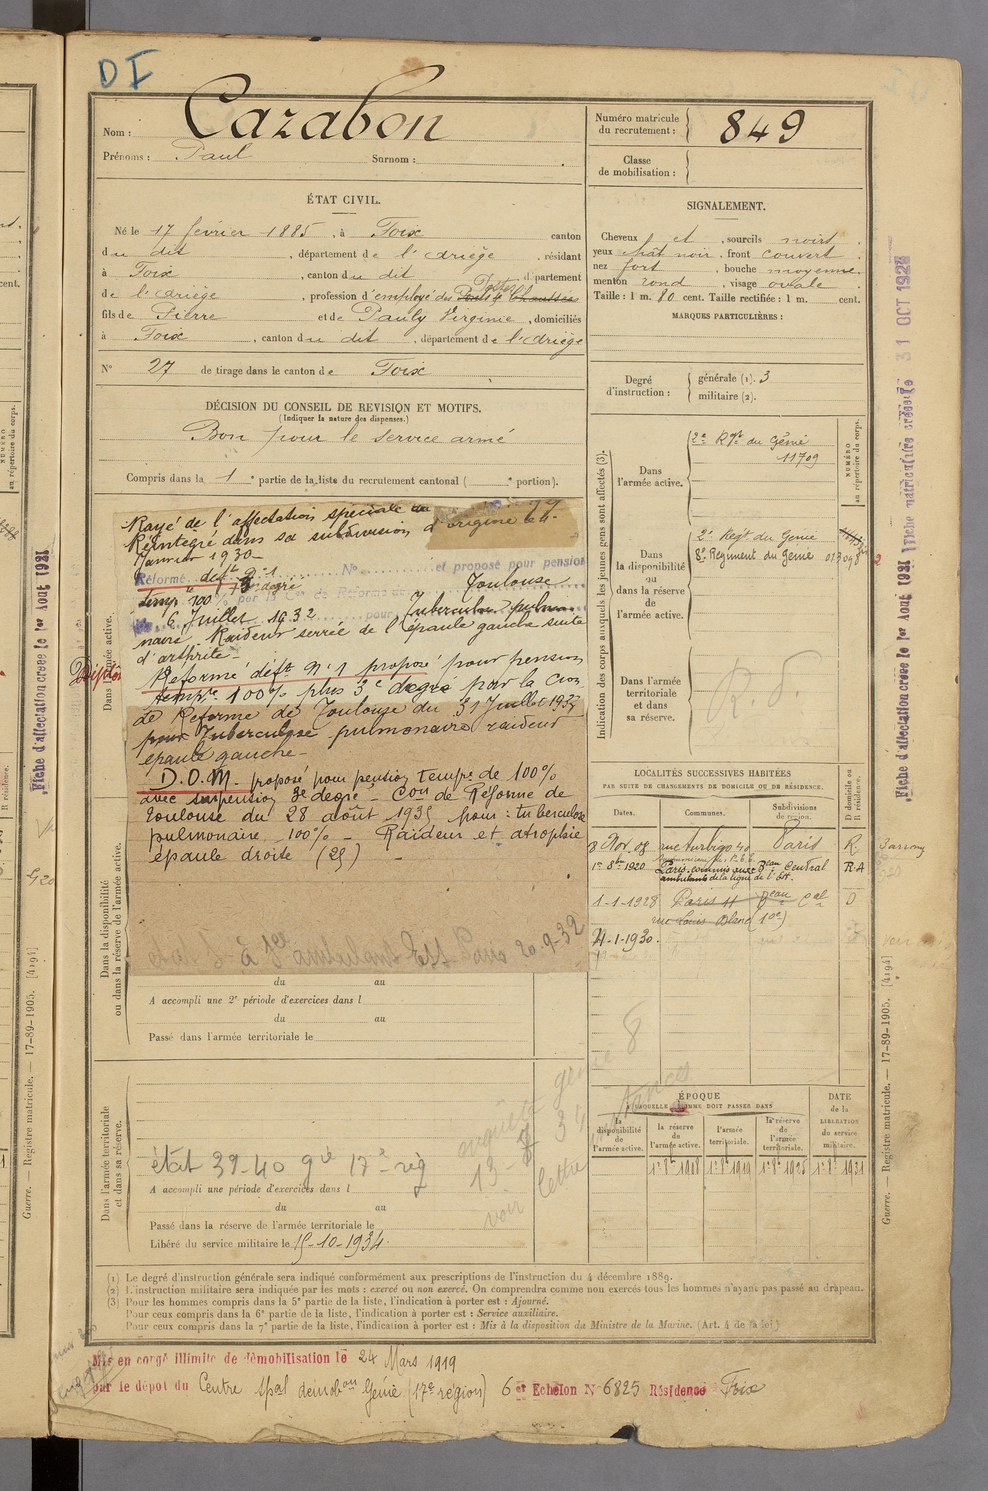 DI
Nom : Cazabon
Prénoms : Paul Surnom :
Numéro matricule
du recrutement : 849
Classe
de mobilisation :
ÉTAT CIVIL.
Né le 17 février 1885, à Foix canton
du dit, département de l'Ariège, résidant
à Foix, canton du dit, département
de l'Ariège, profession d'employé des Postes Ponts et Chaussées
fils de Pierre et de Pauly Virginie, domiciliés
à Foix, canton du dit, département de l'Ariège
N° 27 de tirage dans le canton de Foix
SIGNALEMENT.
Cheveux et, sourcils noirs.
yeux chât noir, front couvert
nez fort, bouche moyenne.
menton rond, visage ovale.
Taille : 1 m. 80 cent. Taille rectifiée : 1 m. cent.
MARQUES PARTICULIÈRES :
Degré
d'instruction :
générale (1). 3
militaire (2).
DÉCISION DU CONSEIL DE REVISION ET MOTIFS.
(Indiquer la nature des dispenses.)
Bon pour le service armé
Compris dans la 1e partie de la liste du recrutement cantonal ( e portion).
Rayé de l'affectation spéciale
Réintégré dans sa subdivision d'origine le 4
Janvier 1930
Réformé déft n° 1 N° et proposé pour pension
temp. 100% 3e degré par la Con de Réforme de Toulouse
6 Juillet 1932 pour Tuberculose pulmo
naire Raideur serrée de l'épaule gauche suite
d'arthrite
Réformé déft n° 1 proposé pour pension
tempre 100% plus 3e degré par la Cion
de Réforme de Toulouse du 31 Juillet 1933
pour Tuberculose pulmonaire raideur
épaule gauche
D.O.M. proposé pour pension tempre de 100%
avec suspension 3e degré - Con de Réforme de
Toulouse du 28 août 1935 pour : tuberculose
pulmonaire 100% - Raideur et atrophie
épaule droite (25) -
20-9-32
du au
A accompli une 2e période d'exercices dans l
du au
Passé dans l'armée territoriale le
état 39-40 gie 17e rég
A accompli une période d'exercices dans l
du au
Passé dans la réserve de l'armée territoriale le
Libéré du service militaire le 15-10-1934
Dans l'armée active.
Dans la disponibilité
ou dans la réserve de l'armée active.
Dans l'armée territoriale
et dans sa réserve.
Indication des corps auxquels les jeunes gens sont affectés (3).
NUMÉRO
au répertoire du corps.
Dans
l'armée active.
2e Rgt du Génie
11709
Dans
la disponibilité
ou
dans la réserve
de
l'armée active.
2e Regt du Génie
8e Régiment du Génie
Dans l'armée
territoriale
et dans
sa réserve.
R.d.
LOCALITÉS SUCCESSIVES HABITÉES
PAR SUITE DE CHANGEMENTS DE DOMICILE OU DE RÉSIDENCE.
Dates. Communes. Subdivisions
de région.
D domicile ou
R résidence.
8 Nov. 08 rue Turbigo 40 Paris R.
1er 8bre 1920 Paris-commis aux Beau Central R.A
ambulants de la ligne de l'Est.
1-1-1928 Paris 11 Beau Cal D
rue Louis Blanc (10e)
4-1-1930.
ÉPOQUE
À LAQUELLE L'HOMME DOIT PASSER DANS
la
disponibilité
de
l'armée active.
la réserve
de
l'armée active.
l'armée
territoriale.
la réserve
de
l'armée
territoriale.
DATE
de la
LIBÉRATION
du service
militaire.
1er 8bre 1908 1er 8bre 1919 1er 8bre 1925 1er 8bre 1931
(1) Le degré d'instruction générale sera indiqué conformément aux prescriptions de l'instruction du 4 décembre 1889.
(2) L'instruction militaire sera indiquée par les mots : exercé ou non exercé. On comprendra comme non exercés tous les hommes n'ayant pas passé au drapeau.
(3) Pour les hommes compris dans la 5e partie de la liste, l'indication à porter est : Ajourné.
Pour ceux compris dans la 6e partie de la liste, l'indication à porter est : Service auxiliaire.
Pour ceux compris dans la 7e partie de la liste, l'indication à porter est : Mis à la disposition du Ministre de la Marine. (Art. 4 de la loi)
Mis en congé illimité de démobilisation le 24 Mars 1919
par le dépôt du Centre Spal démobon Génie (17e région) 6e Echelon N° 6825 Résidence Foix
Fiche d'affectation créée le 1er Août 1921
Fiche matriculaire créée le 31 OCT 1927
Guerre. — Registre matricule. — 17-89-1905. [4194]
Fiche d'affectation créée le 1er Août 1921
Guerre. — Registre matricule. — 17-89-1905. [4194]